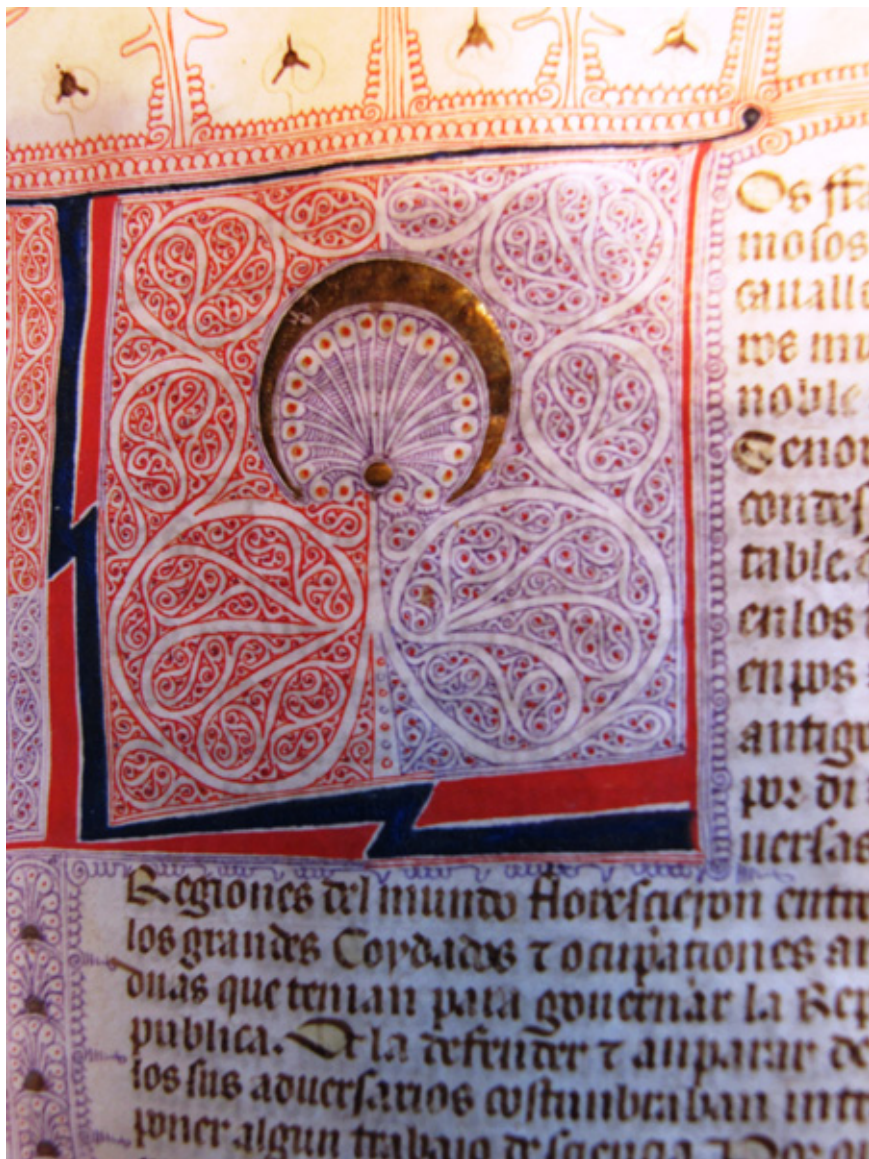 Os ffa
mosos
cauall
we mu
noble
Senor
condes
table.
en los
en pos
antigu
por di
uersas
Regiones del mundo florescieron entre
los grandes Coydados τ ocupaciones ar
duas que tenian para gouernar la Rep
publica. De la defender τ anparar de
los sus aduersarios costunbraban intr
poner algun trabajo de sciencia Por